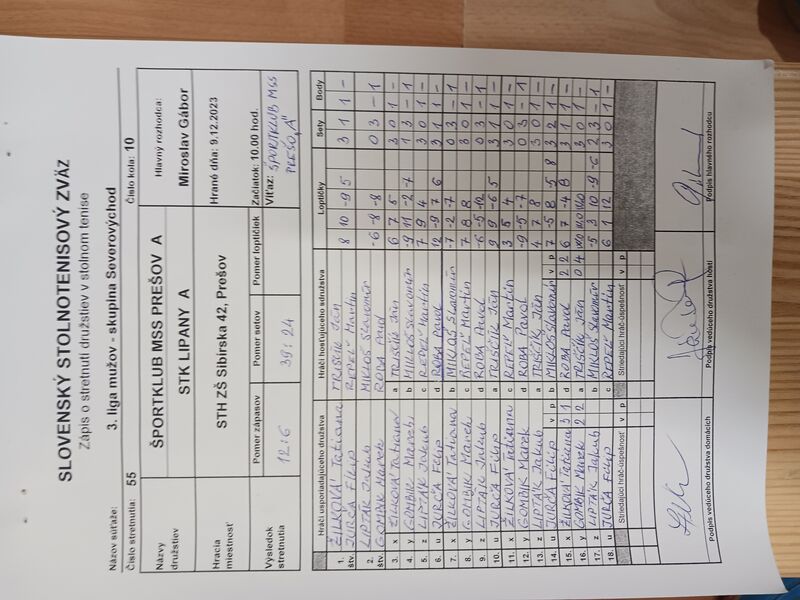 SLOVENSKÝ STOLNOTENISOVÝ ZVÄZ
Zápis o stretnutí družstiev v stolnom tenise
Názov súťaže: 3. liga mužov - skupina Severovýchod
Číslo stretnutia: 55 Číslo kola: 10
Názvy družstiev ŠPORTKLUB MSS PREŠOV A Hlavný rozhodca:
STK LIPANY A Miroslav Gábor
Hracia miestnosť STH ZŠ Sibírska 42, Prešov Hrané dňa: 9.12.2023
Začiatok: 10.00 hod.
Výsledok stretnutia Pomer zápasov Pomer setov Pomer loptičiek Víťaz: ŠPORTKLUB MSS
12:6 39:24 PREŠO„A"
Hráči usporiadajúceho družstva Hráči hosťujúceho sdružstva Loptičky Sety Body
1. ŽILKOVÁ Tatiana TRIŠČÍK Ján 8 10 -9 5 3 1 1 -
štv. JURČA Filip REPEĽ Martin
2. LIPTÁK Jakub MIKLOŠ Slavomír -6 -8 -8 0 3 - 1
štv. GOMBIK Marek ROBA
3. x ŽILKOVÁ Tatiana a TRIŠČÍK Ján 6 7 5 3 0 1 -
4. y GOMBIK Marek b MIKLOŠ Slavomír -9 11 -2 -7 1 3 - 1
5. z LIPTÁK Jakub c REPEĽ Martin 7 9 4 3 0 1 -
6. u JURČA Filip d ROBA Pavol 12 -9 7 6 3 1 1 -
7. x ŽILKOVÁ Tatiana b MIKLOŠ Slavomír -7 -2 -7 0 3 - 1
8. y GOMBIK Marek c REPEĽ Martin 7 8 8 3 0 1 -
9. z LIPTÁK Jakub d ROBA Pavol -6 -5 -12 0 3 - 1
10. u JURČA Filip a TRIŠČÍK Ján 9 9 -6 5 3 1 1 -
11. x ŽILKOVÁ Tatiana c REPEĽ Martin 3 5 4 3 0 1 -
12. y GOMBIK Marek d ROBA Pavol -9 -5 -7 0 3 - 1
13. z LIPTÁK Jakub a TRIŠČÍK Ján 4 7 8 3 0 1 -
14. u JURČA Filip v p b MIKLOŠ Slavomír v p 7 -5 8 -5 8 3 2 1 -
15. x ŽILKOVÁ Tatiana 3 1 d ROBA Pavol 2 2 6 7 -4 8 3 1 1 -
16. y GOMBIK Marek 2 2 a TRIŠČÍK Ján 0 4 WO WO WO 3 0 1 -
17. z LIPTÁK Jakub b MIKLOŠ Slavomír -5 3 10 -9 -6 2 3 - 1
18. u JURČA Filip c REPEĽ Martin 6 1 12 3 0 1 -
Striedajúci hráč-úspešnosť v p Striedajúci hráč-úspešnosť v p
Podpis vedúceho družstva domácich Podpis vedúceho družstva hostí Podpis hlavného rozhodcu